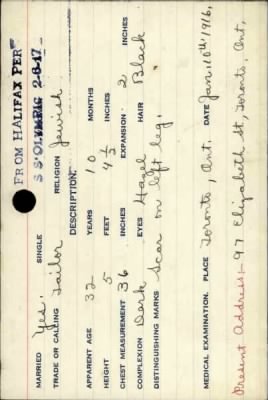 FROM HALIFAX PER
S S "OLYMPIC 2-6-17
MARRIED Yes. SINGLE
TRADE OR CALLING Tailor RELIGION Jewish
DESCRIPTION.
APPARENT AGE 32 YEARS 10 MONTHS
HEIGHT 5 FEET 4 1/2 INCHES
CHEST MEASUREMENT 36 INCHES EXPANSION 2 INCHES
COMPLEXION Dark EYES Hazel HAIR Black
DISTINGUISHING MARKS Scar on left leg.
MEDICAL EXAMINATION. PLACE Toronto, Ont. DATE Jan. 10th 1916.
Present Address:- 97 Elizabeth St, Toronto, Ont.